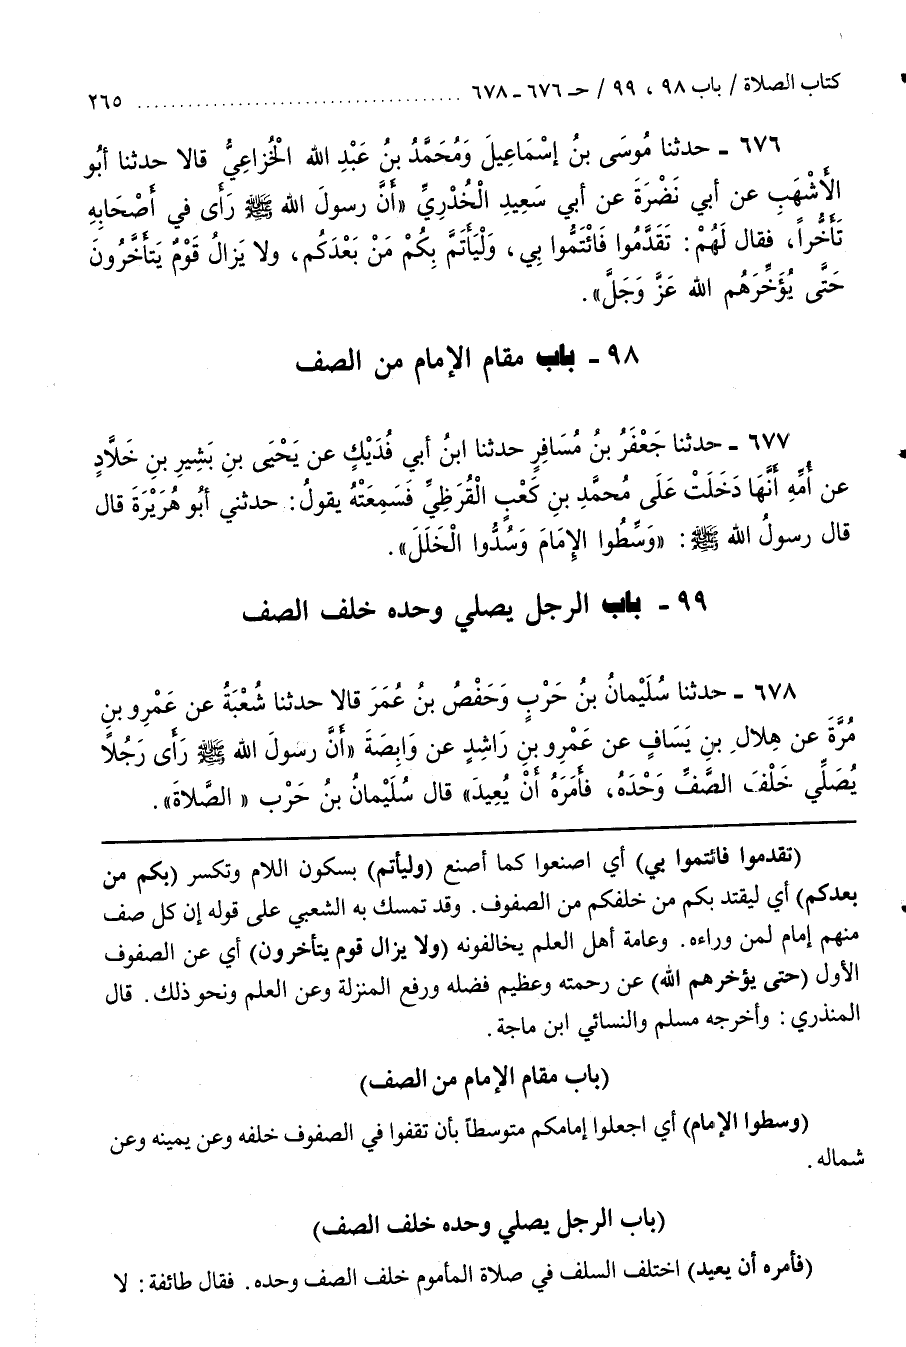 كتاب الصلاة / باب ٩٨ ، ٩٩ / حـ ٦٧٦ ـ ٦٧٨ ........................................ ٢٦٥
٦٧٦ ـ حدثنا مُوسَى بنُ إسْمَاعِيلَ وَمُحَمَّدُ بنُ عَبْدِ الله الْخُزاعِيُّ قالا حدثنا أبُو
الأَشْهَبِ عن أبي نَضْرَةَ عن أبي سَعِيدِ الْخُدْرِيِّ «أَنَّ رسولَ الله ﷺ رَأَى في أَصْحَابِهِ
تَأَخُّراً، فقال لَهُمْ: تَقَدَّمُوا فَائْتَمُّوا بِي، وَلْيَأَتَمَّ بِكُمْ مَنْ بَعْدَكُم، ولا يَزالُ قَوْمٌ يَتَأَخَّرُونَ
حَتَّى يُؤَخِّرَهُم الله عَزَّ وَجَلَّ».
٩٨ - باب مقام الإمام من الصف
٦٧٧ ـ حدثنا جَعْفَرُ بنُ مُسَافِرٍ حدثنا ابنُ أبي فُدَيْكٍ عن يَحْيَى بنِ بَشِيرِ بنِ خَلَّادٍ
عن أُمِّهِ أَنَّهَا دَخَلَتْ عَلَى مُحمَّدِ بنِ كَعْبٍ الْقُرَظِيِّ فَسَمِعَتْهُ يقولُ: حدثني أبُو هُرَيْرَةَ قال
قال رسولُ الله ﷺ: «وَسِّطُوا الإِمَامَ وَسُدُّوا الْخَلَلَ».
٩٩ - باب الرجل يصلي وحده خلف الصف
٦٧٨ ـ حدثنا سُلَيْمانُ بنُ حَرْبٍ وَحَفْصُ بنُ عُمَرَ قالا حدثنا شُعْبَةُ عن عَمْرِو بنِ
مُرَّةَ عن هِلالِ بنِ يَسَافٍ عن عَمْرِو بنِ رَاشِدٍ عن وَابِصَةَ «أَنَّ رسولَ الله ﷺ رَأَى رَجُلاً
يُصَلِّي خَلْفَ الصَّفِّ وَحْدَهُ، فَأَمَرَهُ أَنْ يُعِيدَ» قال سُلَيْمانُ بنُ حَرْب « الصَّلاةَ».
(تقدموا فائتموا بي) أي اصنعوا كما أصنع (وليأتم) بسكون اللام وتكسر (بكم من
بعدكم) أي ليقتد بكم من خلفكم من الصفوف. وقد تمسك به الشعبي على قوله إن كل صف
منهم إمام لمن وراءه. وعامة أهل العلم يخالفونه (ولا يزال قوم يتأخرون) أي عن الصفوف
الأول (حتى يؤخرهم الله) عن رحمته وعظيم فضله ورفع المنزلة وعن العلم ونحو ذلك. قال
المنذري: وأخرجه مسلم والنسائي ابن ماجة.
(باب مقام الإمام من الصف)
(وسطوا الإمام) أي اجعلوا إمامكم متوسطاً بأن تقفوا في الصفوف خلفه وعن يمينه وعن
شماله.
(باب الرجل يصلي وحده خلف الصف)
(فأمره أن يعيد) اختلف السلف في صلاة المأموم خلف الصف وحده. فقال طائفة: لا